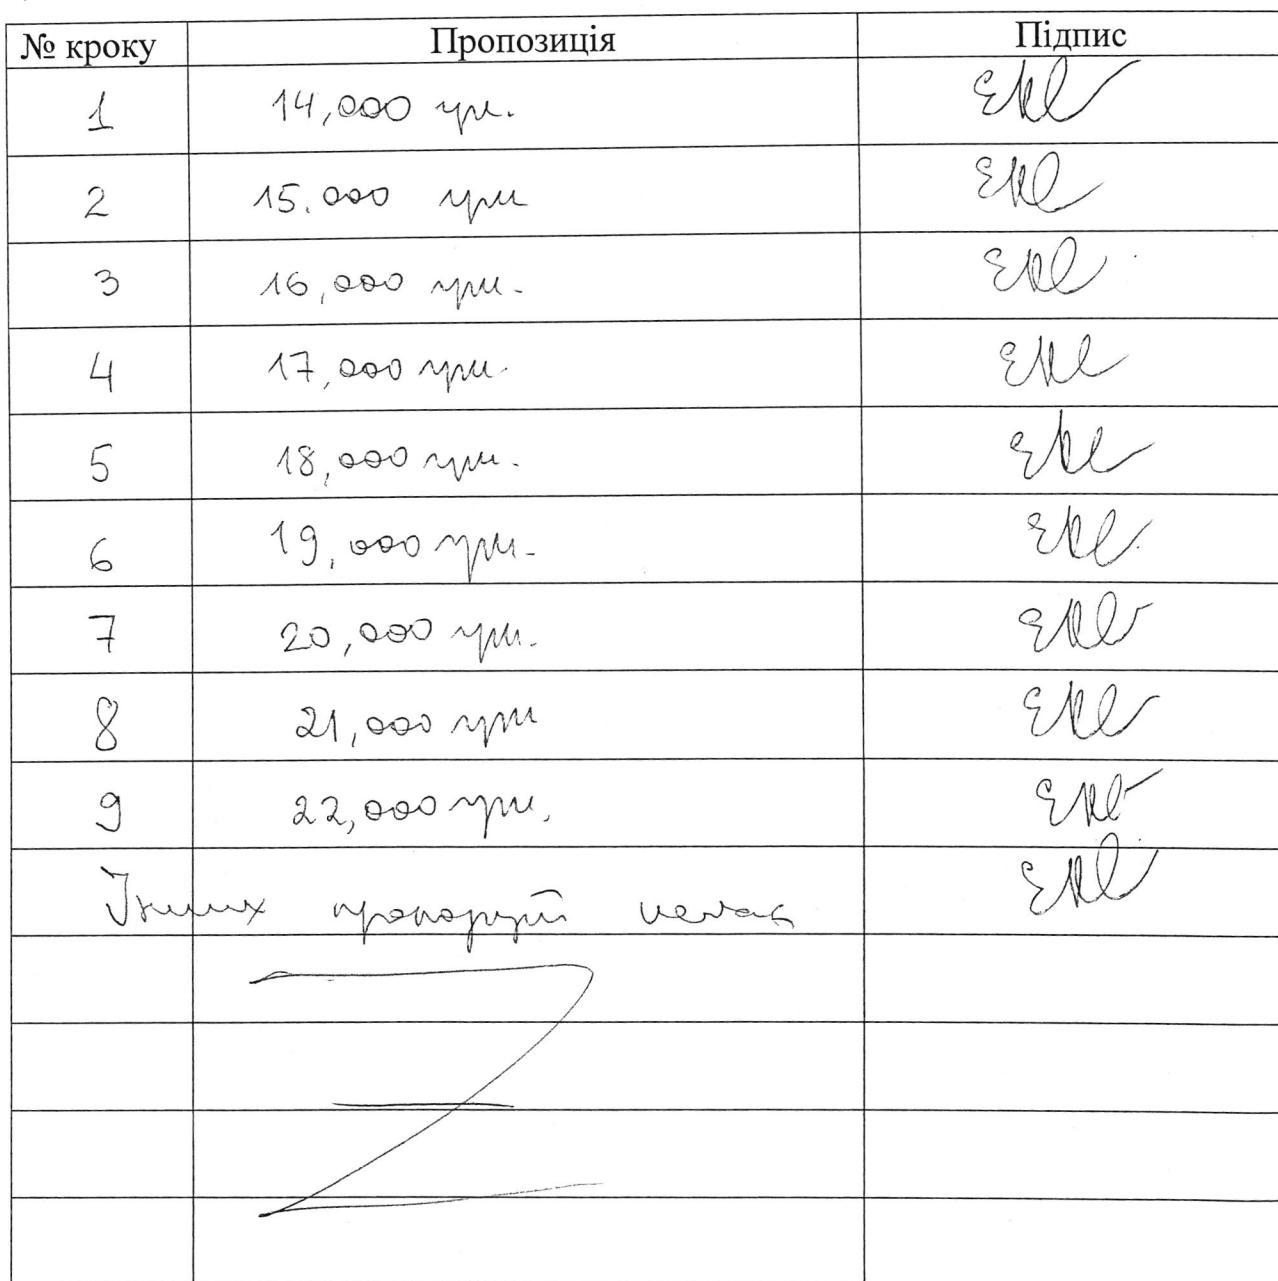 № кроку Пропозиція Підпис
1 14,000 грн.
2 15.000 грн
3 16,000 грн.
4 17,000 грн.
5 18,000 грн.
6 19,000 грн.
7 20,000 грн.
8 21,000 грн
9 22,000 грн.
Інших пропозицій немає